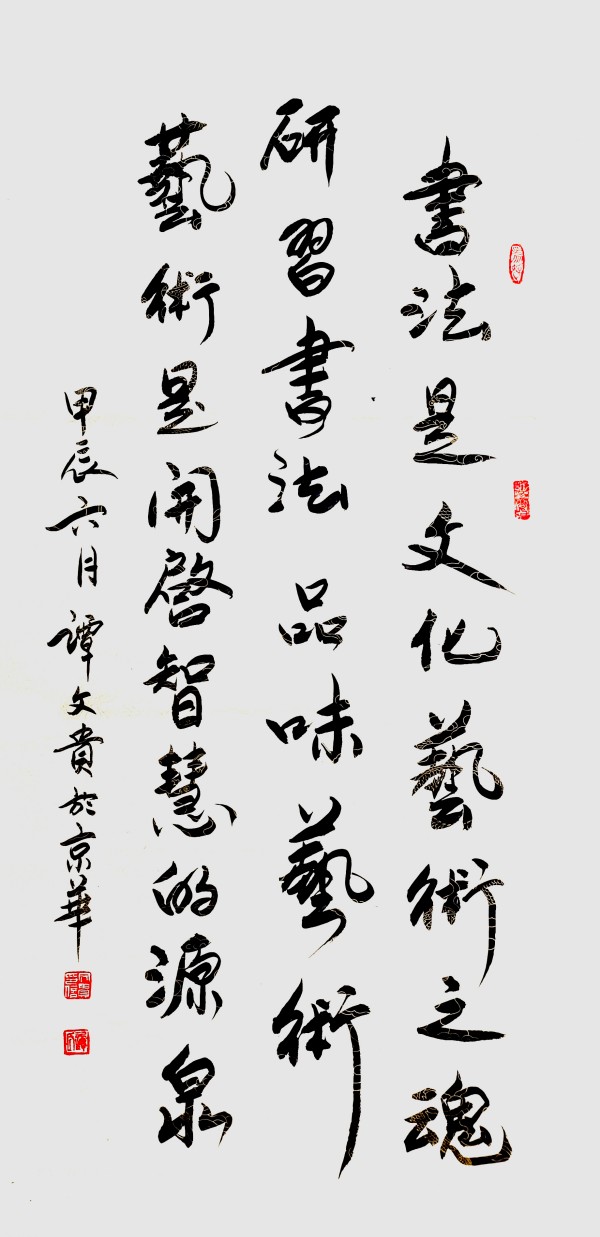 書法是文化藝術之魂
研習書法品味藝術
藝術是開啓智慧的源泉
甲辰六月譚文貴於京華